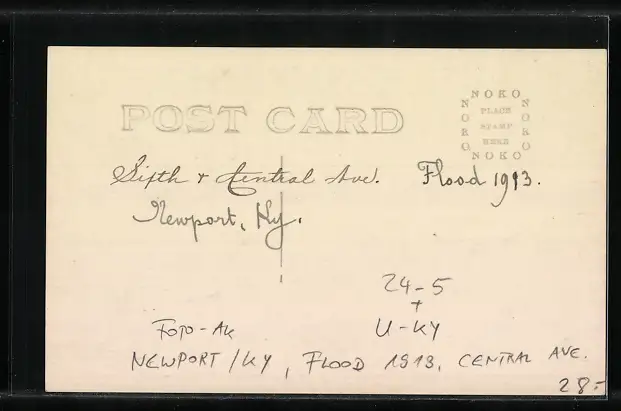 POST CARD
NOKO
NOKO
PLACE
STAMP
HERE
NOKO
NOKO
Sixth & Central Ave. Flood 1913.
Newport, Ky.
24-5
+
FOTO-AK U-KY
NEWPORT/KY, FLOOD 1913, CENTRAL AVE.
28.-